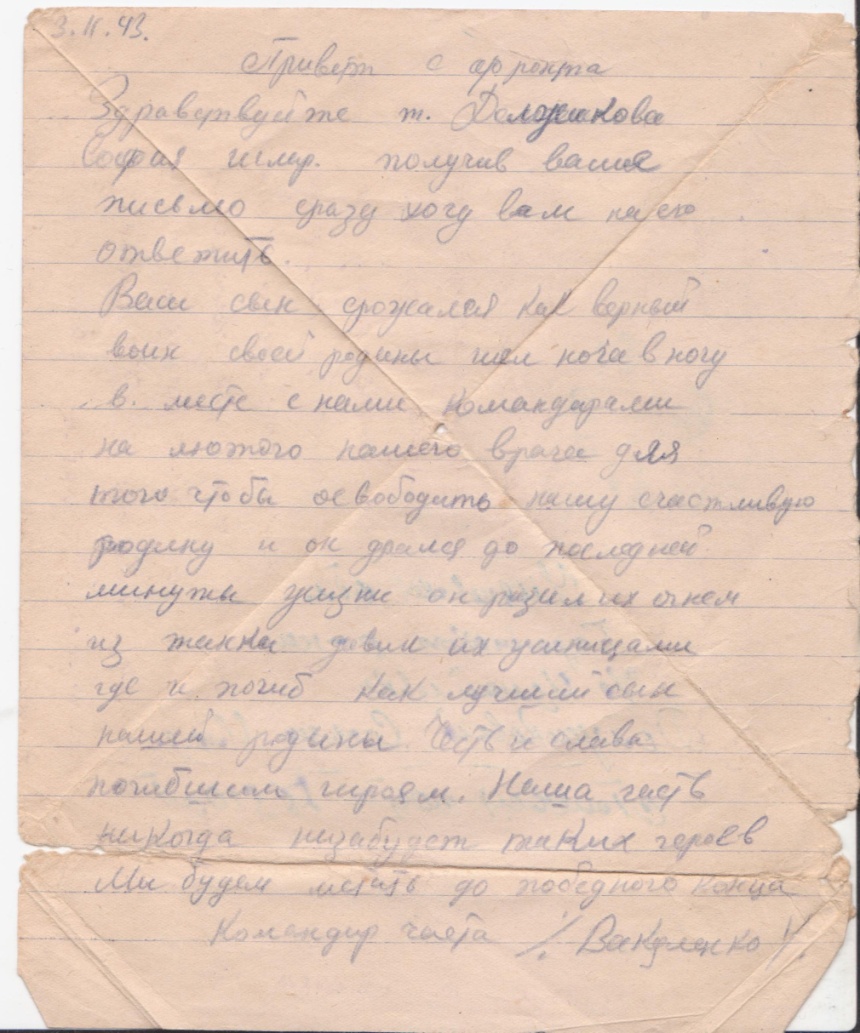 3.II.43.
Привет с фронта
Здравствуйте т.
София получив ваше
письмо сразу хочу вам на его
ответить.
Ваш сын срожался как верный
воин своей родины шел нога в ногу
в месте с нами командирами
на лютого нашего врага для
того чтобы освободить нашу счастливую
родину и он дрался до последней
минуты жизни он разил их огнем
из танка давил их гусиницами
где и погиб как лучший сын
нашей родины. Честь и слава
погибшим героям. Наша часть
никогда незабудет таких героев
Мы будем мстить до победного конца
Командир части /. Вакуленко /.